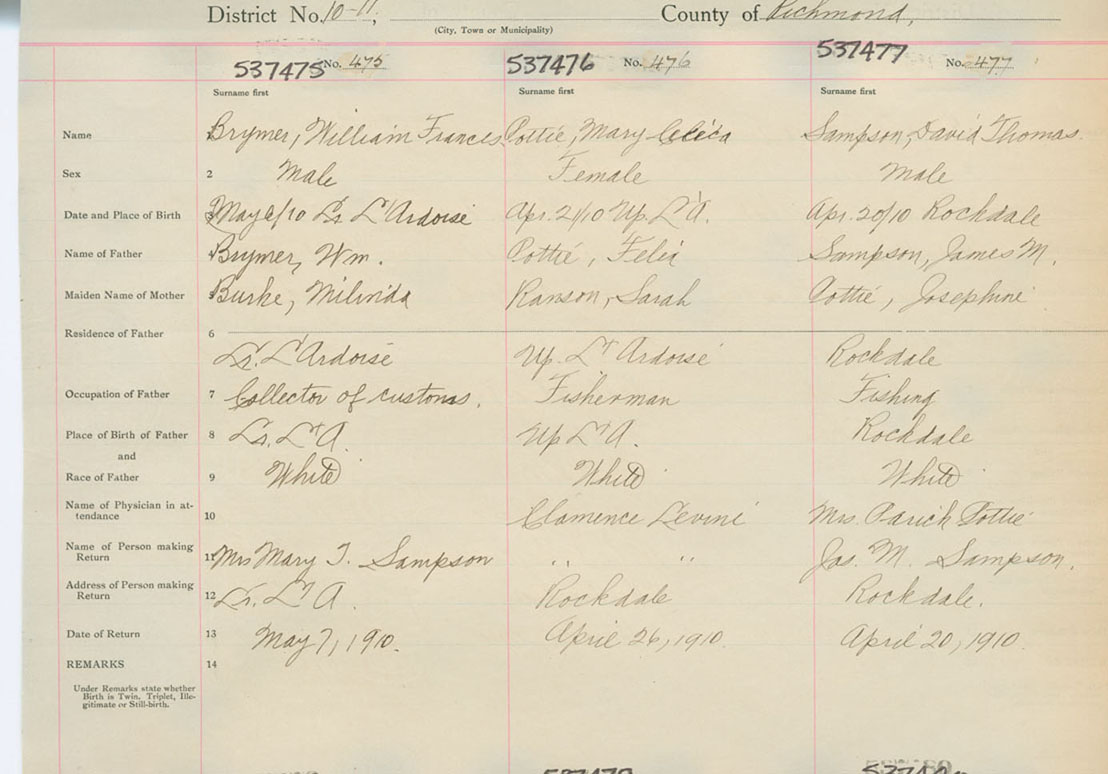 District No. 10-11, County of Richmond,
(City, Town or Municipality)
537475 No. 475 537476 No. 476 537477 No. 477
Surname first Surname first Surname first
Name Brymer, William Frances Pottie, Mary Celica Sampson, David Thomas.
Sex 2 Male Female Male
Date and Place of Birth 3 May 6/10 Lr. L'Ardoise Apr. 21/10 Up. L'A. Apr. 20/10 Rockdale
Name of Father Brymer, Wm. Pottie, Felix Sampson, James M.
Maiden Name of Mother Burke, Milinda Ranson, Sarah Pottie, Josephine
Residence of Father 6
Lr. L'Ardoise Up. L'Ardoise Rockdale
Occupation of Father 7 Collector of customs. Fisherman Fishing
Place of Birth of Father 8 Lr. L'A. Up L'A. Rockdale
and
Race of Father 9 White White White
Name of Physician in at-
tendance 10 Clamence Levini Mrs. Parick Pottie
Name of Person making
Return 11 Mrs Mary J. Sampson " " Jas. M. Sampson.
Address of Person making
Return 12 Lr. L'A. Rockdale Rockdale.
Date of Return 13 May 7, 1910. April 26, 1910. April 20, 1910.
REMARKS 14
Under Remarks state whether
Birth is Twin, Triplet, Ille-
gitimate or Still-birth.